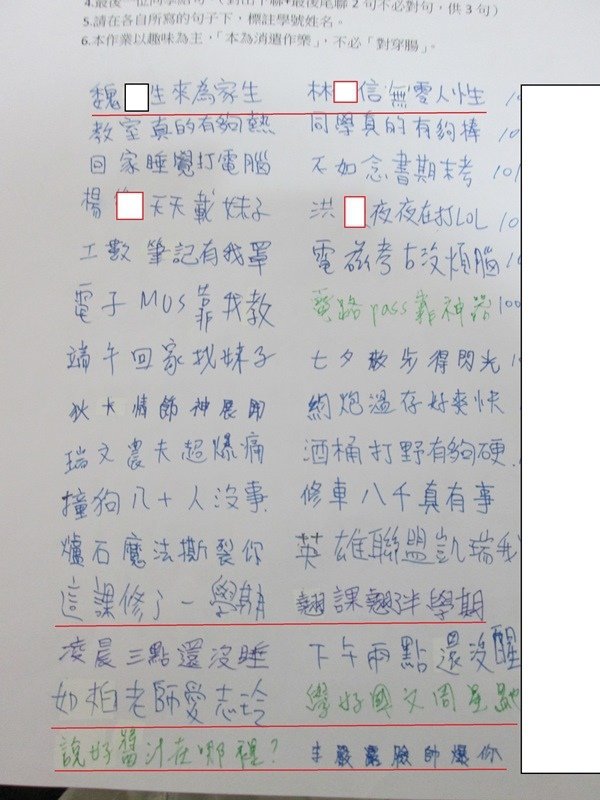 4.最後一位同學結句。(對出下聯+最後尾聯 2 句不必對句，供 3 句)
5.請在各自所寫的句子下，標註學號姓名。
6.本作業以趣味為主，「本為消遣作樂」，不必「對穿腸」。
魏 生來為家生 林 信無零人性
教室真的有夠熱 同學真的有夠棒
回家睡覺打電腦 不如念書期末考
楊 天天載妹子 洪 夜夜在打LOL
工數筆記有我罩 電磁考古沒煩腦
電子MOS靠我教 電路pass靠神器
端午回家找妹子 七夕散步得閃光
狄大情師神展開 約炮溫存好爽快
瑞文農夫超爆痛 酒桶打野有夠硬
撞狗八十人沒事 修車八千真有事
爐石魔法撕裂你 英雄聯盟凱瑞我
這課修了一學期 翹課翹半學期
凌晨三點還沒睡 下午兩點還沒醒
如柏老師愛志玲 學好國文周星馳
說好醬汁在哪裡? 帥爆你